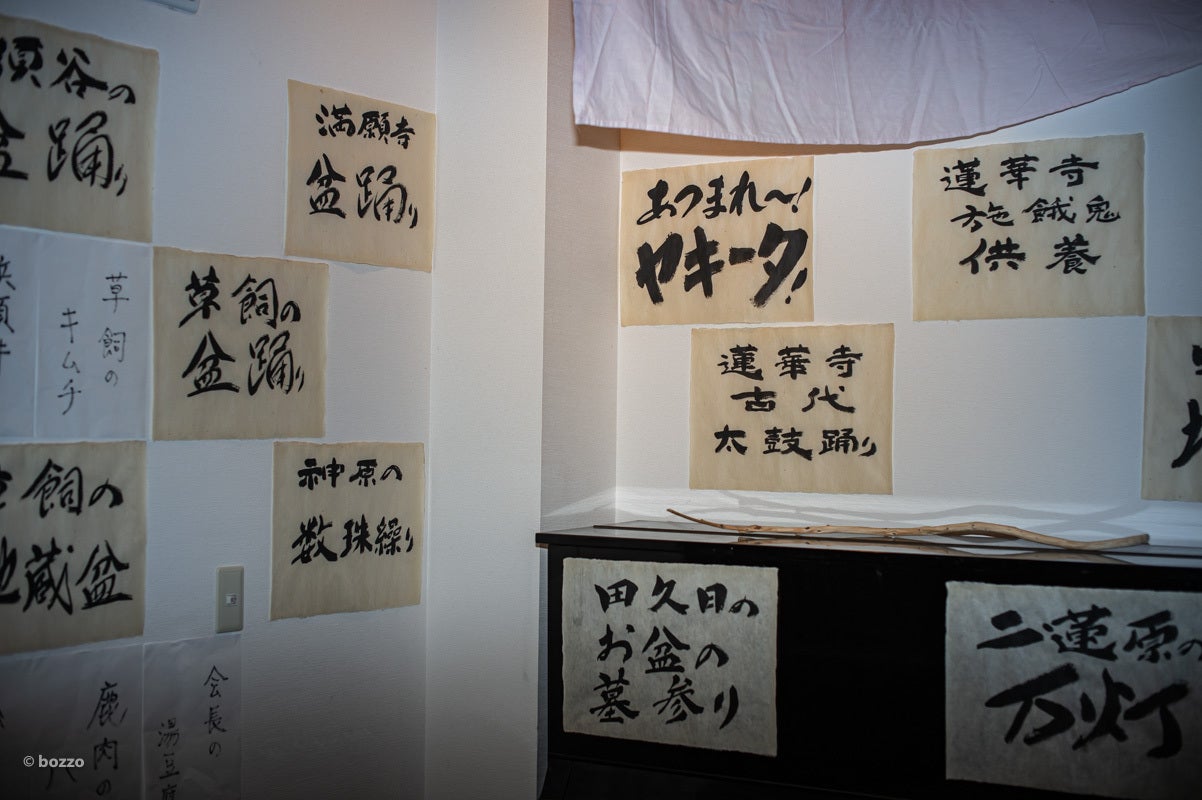 須谷の
盆踊り
満願寺
盆踊り
草飼の
キムチ
草飼の
盆踊り
飼の
地蔵盆
神原の
数珠繰り
会長の
湯豆腐
鹿肉の
あつまれ〜!
ヤキータ!
蓮華寺
施餓鬼
供養
蓮華寺
古代
太鼓踊り
田久日の
お盆の
墓参り
二蓮原の
万灯
© bozzo